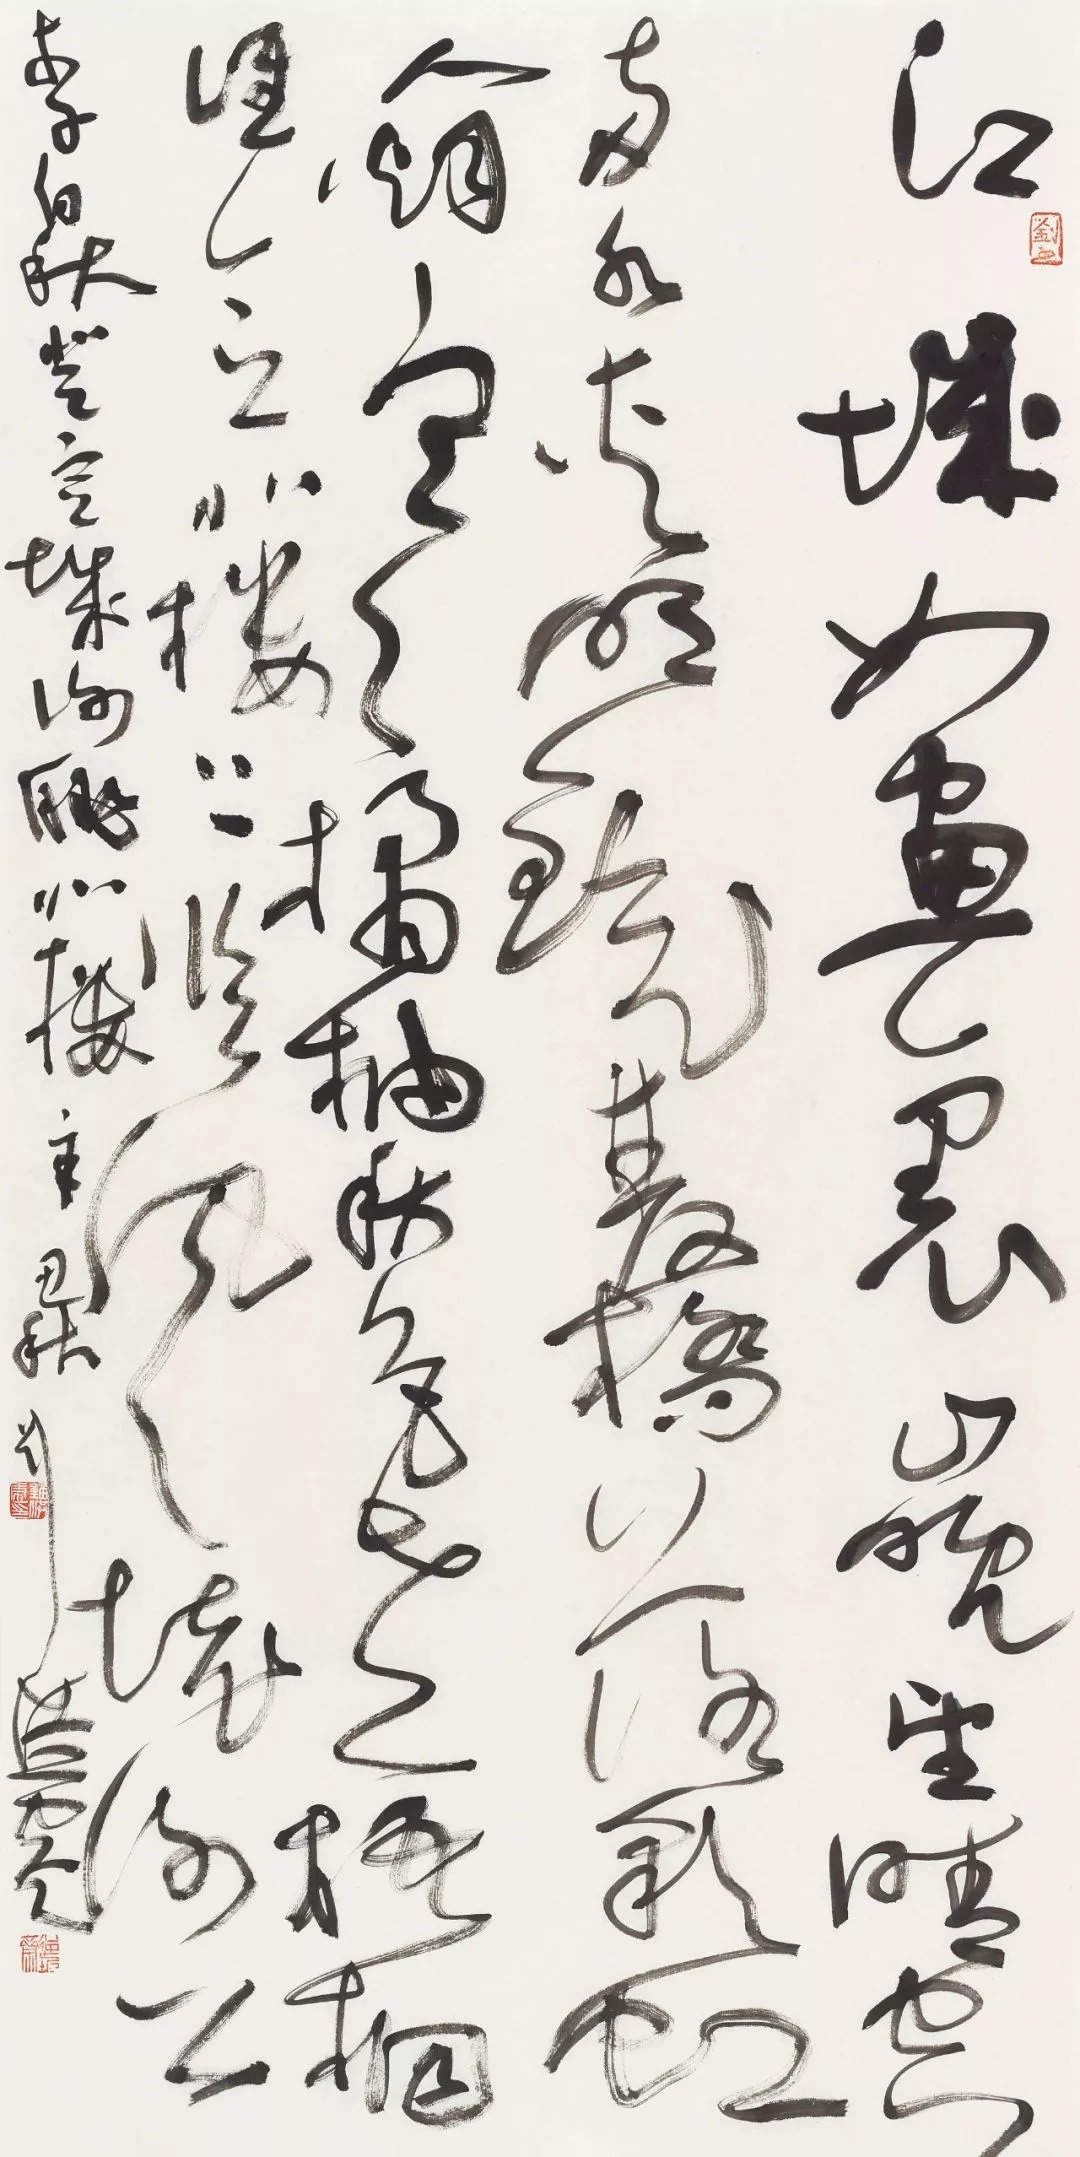 江城如畫裏山晚望晴空
兩水夾明鏡雙橋落彩虹
人烟寒橘柚秋色老梧桐
誰念北樓上臨風懷謝公
李白秋登宣城謝朓北樓辛丑秋劉洪彪